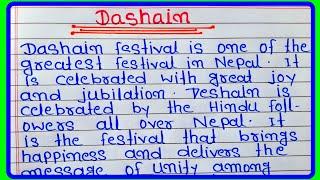 Dashain
Dashain festival is one of the
greatest festival in Nepal. It
is celebrated with great joy
and jubilation. Deshain is
celebrated by the Hindu foll-
owers all over Nepal. It
is the festival that brings
happiness and delivers the
message of unity among